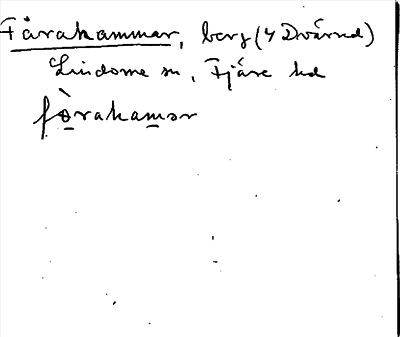 Fårakammar, berg (y Dvärred)
Lindome sn, Fjäre hd
fò̱rakam̱ər